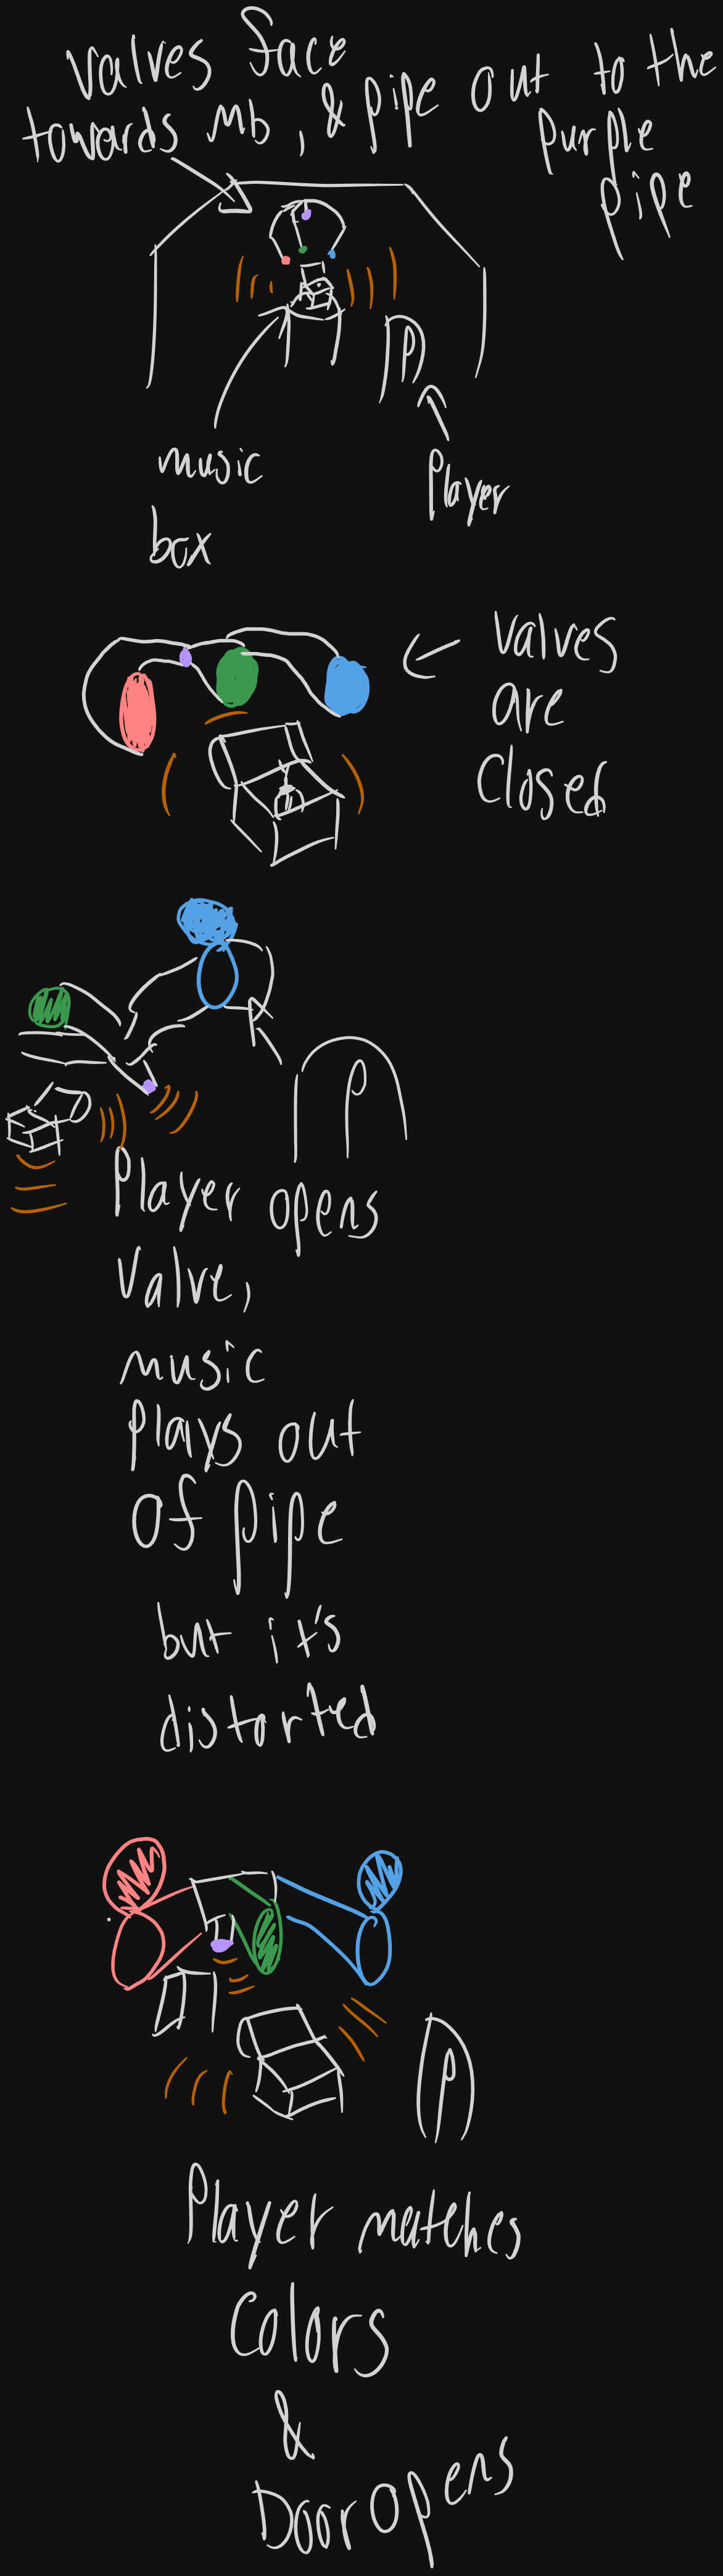 Valves face
towards Mb, & pipe out to the
purple
pipe
P
music
box
Player
Valves
are
Closed
P
Player opens
Valve,
music
plays out
of pipe
but it's
distorted
P
Player matches
Colors
&
Door opens